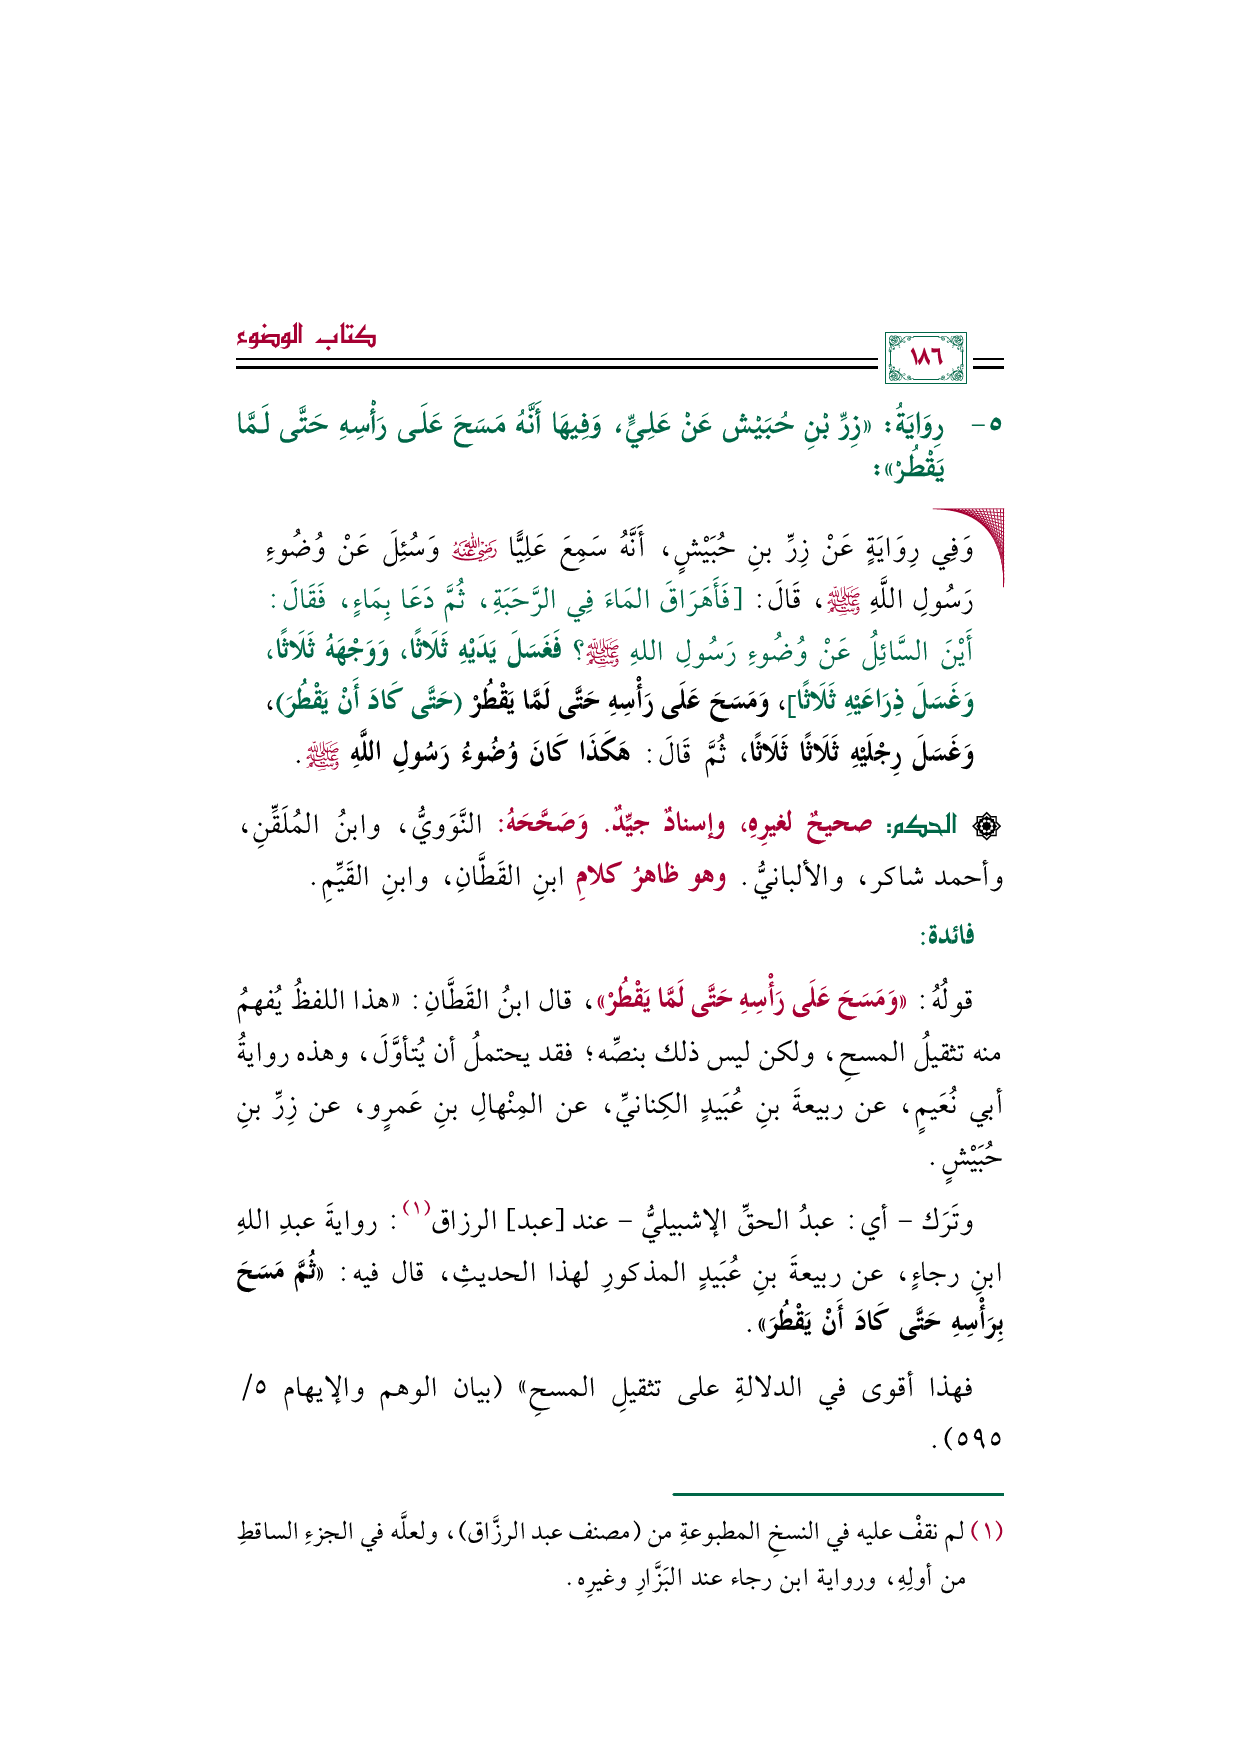 كتاب الوضوء
١٨٦
٥- رِوَايَةُ: «زِرِّ بْنِ حُبَيْش عَنْ عَلِيٍّ، وَفِيهَا أَنَّهُ مَسَحَ عَلَى رَأْسِهِ حَتَّى لَمَّا
يَقْطُرْ»:
وَفِي رِوَايَةٍ عَنْ زِرِّ بنِ حُبَيْشٍ، أَنَّهُ سَمِعَ عَلِيًّا رضي الله عنه وَسُئِلَ عَنْ وُضُوءِ
رَسُولِ اللَّهِ ﷺ، قَالَ: [فَأَهَرَاقَ المَاءَ فِي الرَّحَبَةِ، ثُمَّ دَعَا بِمَاءٍ، فَقَالَ:
أَيْنَ السَّائِلُ عَنْ وُضُوءِ رَسُولِ اللهِ ﷺ؟ فَغَسَلَ يَدَيْهِ ثَلَاثًا، وَوَجْهَهُ ثَلَاثًا،
وَغَسَلَ ذِرَاعَيْهِ ثَلَاثًا]، وَمَسَحَ عَلَى رَأْسِهِ حَتَّى لَمَّا يَقْطُرْ (حَتَّى كَادَ أَنْ يَقْطُرَ)،
وَغَسَلَ رِجْلَيْهِ ثَلَاثًا ثَلَاثًا، ثُمَّ قَالَ: هَكَذَا كَانَ وُضُوءُ رَسُولِ اللَّهِ ﷺ.
الحكم: صحيحٌ لغيرِهِ، وإسنادٌ جيِّدٌ. وَصَحَّحَهُ: النَّوَويُّ، وابنُ المُلَقِّنِ،
وأحمد شاكر، والألبانيُّ. وهو ظاهرُ كلامِ ابنِ القَطَّانِ، وابنِ القَيِّمِ.
فائدة:
قولُهُ: «وَمَسَحَ عَلَى رَأْسِهِ حَتَّى لَمَّا يَقْطُرْ»، قال ابنُ القَطَّانِ: «هذا اللفظُ يُفهمُ
منه تثقيلُ المسحِ، ولكن ليس ذلك بنصِّه؛ فقد يحتملُ أن يُتأوَّلَ، وهذه روايةُ
أبي نُعَيمٍ، عن ربيعةَ بنِ عُبَيدٍ الكِنانيِّ، عن المِنْهالِ بنِ عَمرٍو، عن زِرِّ بنِ
حُبَيْشٍ.
وتَرَك - أي: عبدُ الحقِّ الإشبيليُّ - عند [عبد] الرزاق(١): روايةَ عبدِ اللهِ
ابنِ رجاءٍ، عن ربيعةَ بنِ عُبَيدٍ المذكورِ لهذا الحديثِ، قال فيه: «ثُمَّ مَسَحَ
بِرَأْسِهِ حَتَّى كَادَ أَنْ يَقْطُرَ».
فهذا أقوى في الدلالةِ على تثقيلِ المسحِ» (بيان الوهم والإيهام ٥/
٥٩٥).
(١) لم نقفْ عليه في النسخِ المطبوعةِ من (مصنف عبد الرزَّاق)، ولعلَّه في الجزءِ الساقطِ
من أولِهِ، ورواية ابن رجاء عند البَزَّارِ وغيرِه.